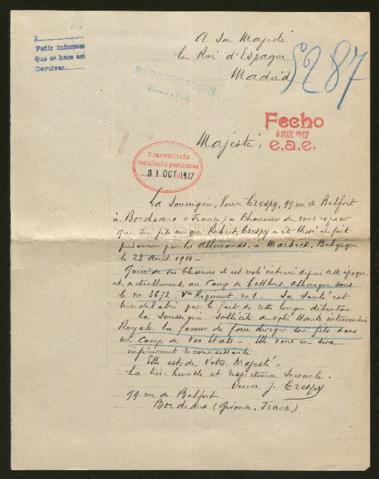 A
Pedir informes
Que se hace así
Devolver
A Sa Majesté
le Roi d'Espagne
Madrid
5287
REPATRIACIÓN
MILITAR
Fecho
9 MAY. 1917
e.a.e.
Majesté,
Transmitido
resultado gestiones
31 OCT 1917
La Soussignée, Veuve Crespy, 99 rue de Belfort
à Bordeaux (France) a l'honneur de vous exposer
que son fils unique Robert Crespy a été blessé et fait
prisonnier par les Allemands, à Maubeuge, Belgique
le 23 août 1914
Guéri de ses blessures il est resté interné depuis cette époque
et, actuellement, au Camp de Cottbus, Allemagne sous
le no 3672, Régiment no 1. Sa Santé est
par le fait de cette longue détention
La Soussignée Sollicite de votre Haute intervention
Royale, la faveur de faire diriger son fils dans
un Camp de Vos Etats. Elle vous en sera
infiniment reconnaissante.
Elle est, de Votre Majesté,
La très humble et respectueuse Servante.
Veuve J. Crespy
99 rue de Belfort
Bordeaux (Gironde, France)